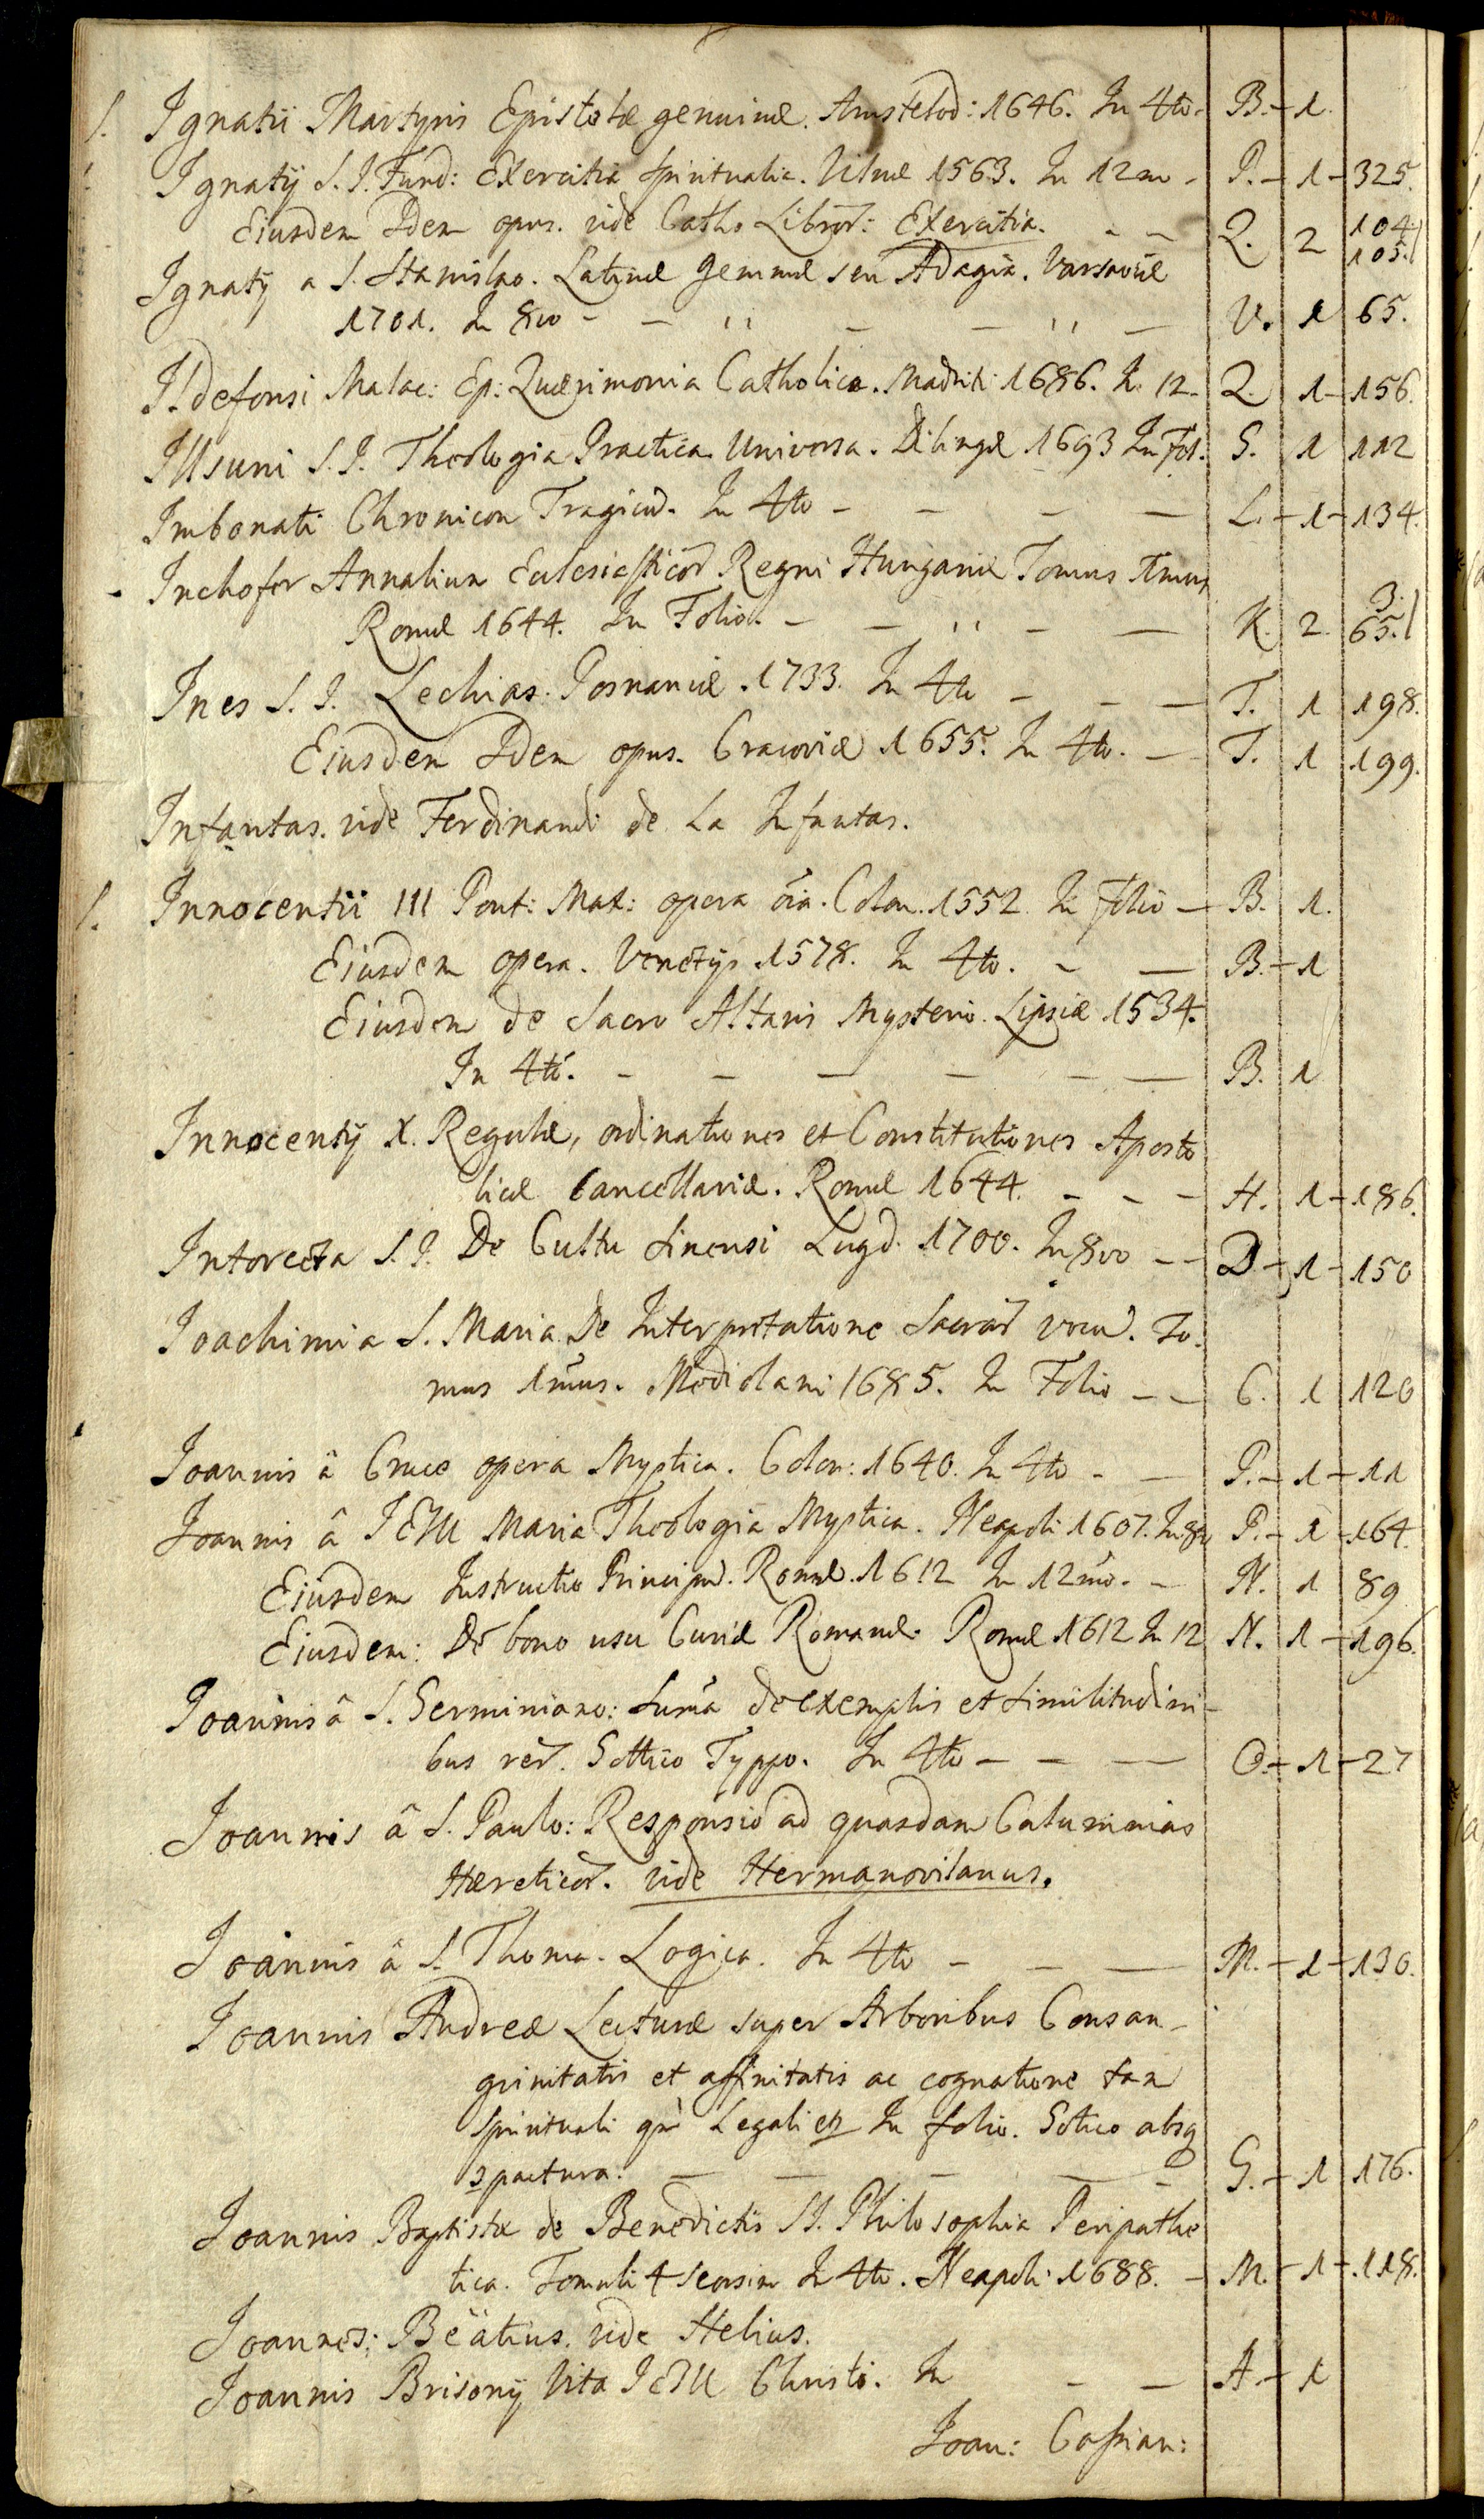 1. Ignatii Martyris Epistolæ genuinæ. Amstelod: 1646. In 4to. B. - 1.
Ignatÿ S. J. Fund: Exercitia spiritualia. Vilnæ 1563. In 12mo - P. - 1 - 325.
Eiusdem Idem opus. vide Catho Libror: Exercitia. - - Q. 2 104 105.
Ignatÿ a S. Stanislao. Latinæ Gemmæ seu Adagia. Varsaviæ
1701. In 8vo - - " - - " - V. 1 65.
Ildefonsi Malac: Ep: Querimonia Catholica. Madriti 1686. In 12. Q. 1 - 156.
Illsuni S. J. Theologia Practica Universa. Dilingæ 1693 In Fol. G. 1 112
Imbonati Chronicon Tragicū. In 4to - - - - L. - 1 - 134.
Inchofer Annalium Ecclesiasticor Regni Hungariæ Tomus 1mus
Romæ 1644. In Folio. - - " - - K. 2. 3. 65.
Ines S. J. Lechias. Posnaniæ. 1733. In 4to - - - T. 1 198.
Eiusdem Idem opus. Cracoviæ 1655. In 4to. - T. 1 199.
Infantas. vide Ferdinandi de La Infantas.
1. Innocentii III Pont: Max: opera oīa. Colon. 1552. In folio - B. 1.
Eiusdem opera. Venetÿs 1578. In 4to. - - B. - 1
Eiusdem de Sacro Altaris Mysterio. Lipsiæ 1534.
In 4to. - - - - - - B. 1
Innocentÿ X. Regulæ, ordinationes et Constitutiones Aposto
licæ Cancellariæ. Romæ 1644. - - - H. 1 - 186.
Intorcetta S. J. De Cultu Sinensi Lugd. 1700. In 8vo - - D - 1 - 150
Joachimi a S. Maria De Interpretatione Sacrar vocū. To.
mus 1mus. Mediolani 1685. In Folio - - C. 1 120
Joannis â Cruce opera Mystica. Colon: 1640. In 4to - - P. - 1 - 11
Joannis â IESU Maria Theologia Mystica. Neapoli 1607. In 8v P. - 1 - 164.
Eiusdem Instructio Principū. Romæ. 1612 In 12mo. - N. 1 89
Eiusdem: De bono usu Curiæ Romanæ. Romæ 1612 In 12 N. 1 - 196.
Joannis â S. Geminiano: Sum̄a de exemplis et similitudini-
bus rer. Gottico Typpo. In 4to - - - O. - 1 - 27
Joannis â S. Paulo: Responsio ad quasdam Calumnias
Hæreticor. vide Hermanovilanus.
Joannis â S. Thoma. Logica. In 4to - - - M. - 1 - 130.
Joannis Andreæ Lecturæ super Arboribus Consan-
guinitatis et affinitatis ac cognatione tam
spirituali q̄ Legali etc In folio. Gotico absq
spactura. - - - - - G. - 1 176.
Joannis Baptistæ de Benedictis SJ. Philosophia Peripathe
tica. Tomuli 4 seorsim In 4to. Neapoli 1688. - M. - 1 - 118.
Joannes: Beätius. vide Helius.
Joannis Brisonÿ Vita IESU Christi. In - - A. - 1
Joan: Cassian: